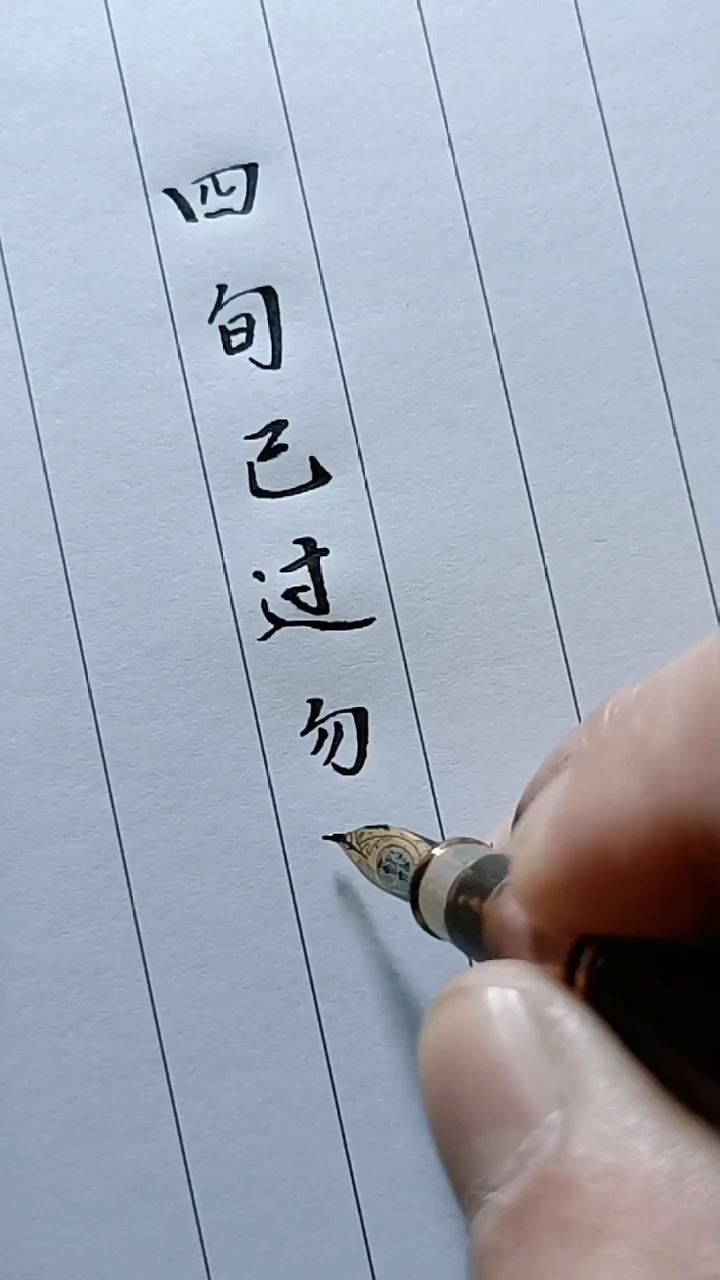 四旬已过勿